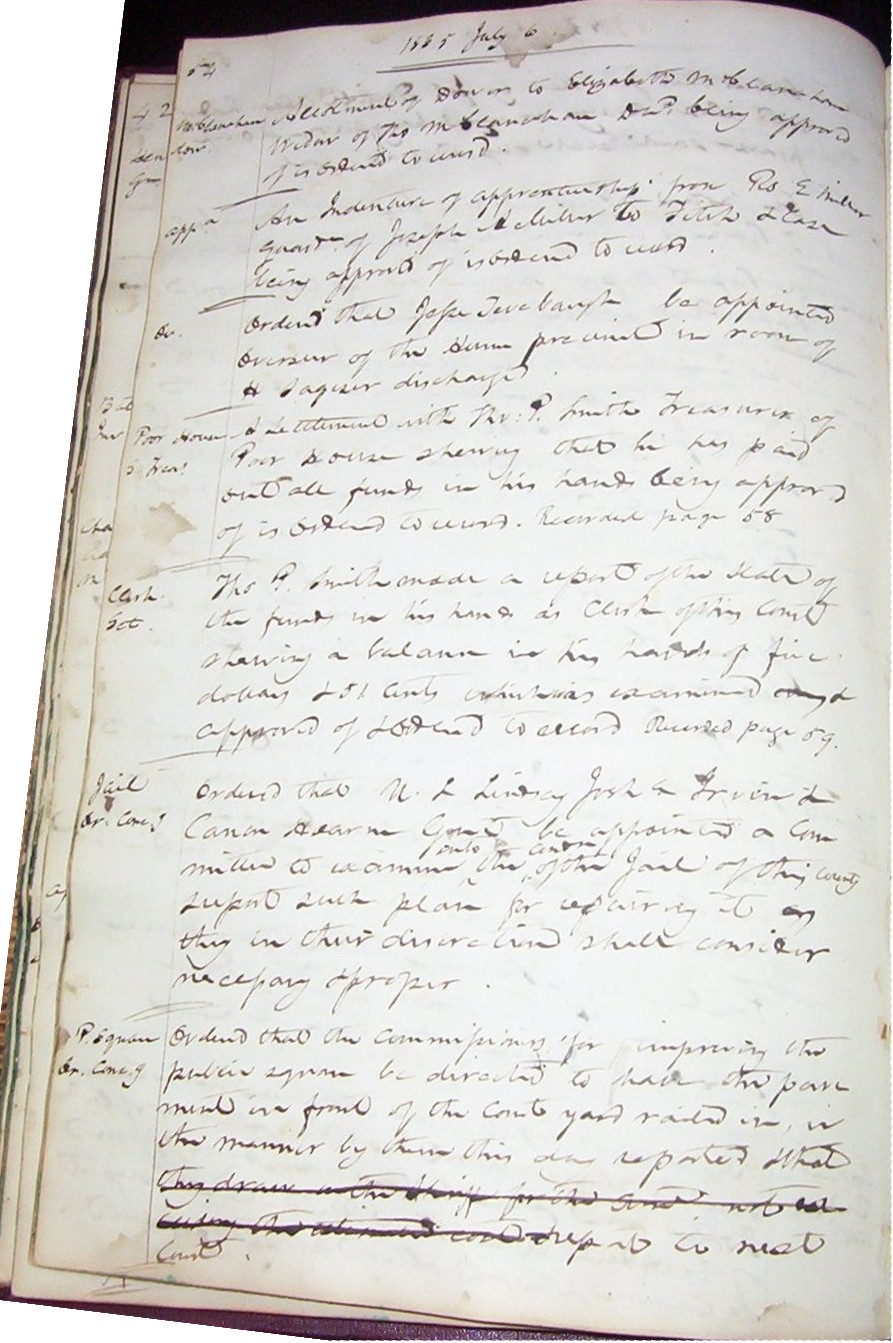 54
1835 July 6
McClanahan
dow.
Allotment of Dower to Elizabeth McClanahan
Widow of Tho McClanahan Decd. being approvd
of is Ordered to record.
app. a
An Indenture of apprenticeship from
Guardn. of Joseph A Miller to Fitch & Case
being approved of is Ordered to record.
Or.
Ordered that Jesse Tevebaugh be appointed
Overseer of the precinct in room of
H Jaquess discharged.
Poor House
& Treas
A Settlement with Tho: P. Smith Treasurer of
Poor House shewing that he has paid
out all funds in his hands being approved
of is Ordered to record. Recorded page 58
Clerk
Set.
Tho P. Smith made a report of the State of
the funds in his hands as Clerk of this Court
shewing a balance in his hands of five
dollars & 51 Cents which was examined &
approved of & Ordered to record Recorded page 59.
Jail
Or. Conc.g
Ordered that N. L Lindsay & Irvin &
Hearne Gent be appointed a Com
into conn
mittee to examine the of the Jail of this County
& report such plan for repairing it as
they in their discretion shall consider
necessary & proper.
P. Square
Or. Conc.g
Ordered that the Commissioners for improving the
public square be directed to have the pave
ment in front of the Court yard railed in, in
the manner by them this day reported & that
they draw on the Sheriff for the not
the estimated cost & report to next
Court.